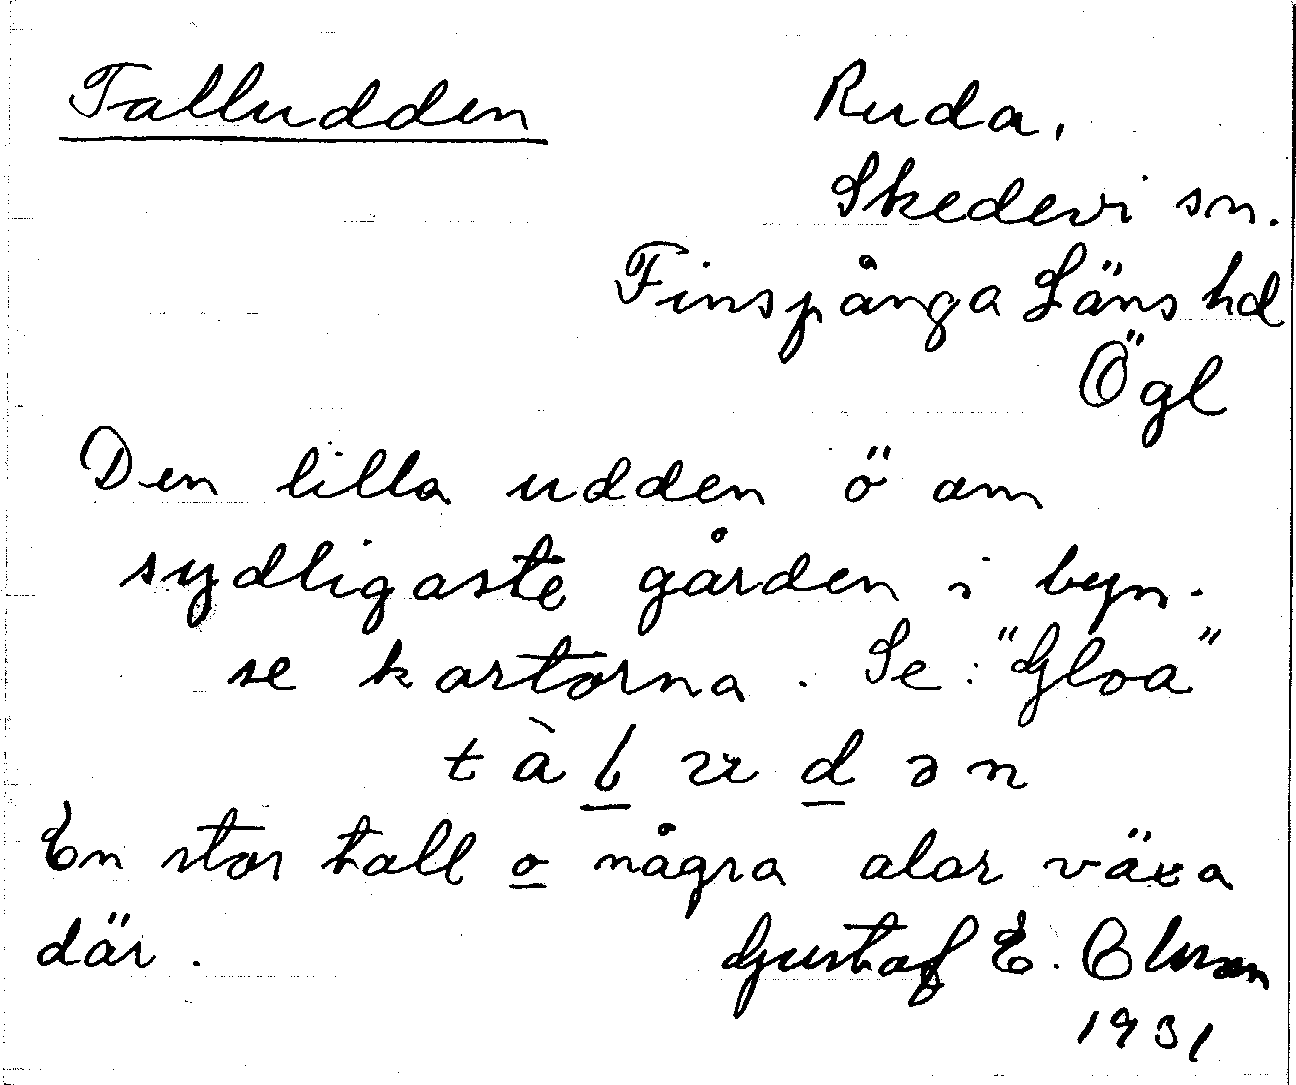 Talludden
Ruda,
Skedevi sn.
Finspånga Läns hd
Ögl
Den lilla udden ö om
sydligaste gården i byn.
se kartorna. Se: "Gloa"
t à l u d ə n
En stor tall o några alar växa
där.
Gustaf E.
1931